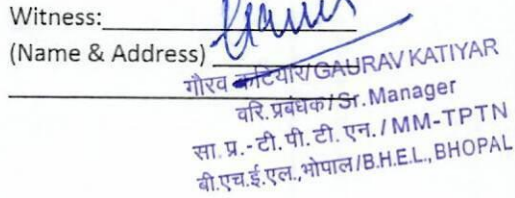 Witness:
(Name & Address)
गौरव कटियार/GAURAV KATIYAR
वरि. प्रबंधक/Sr. Manager
सा. प्र.-टी. पी. टी. एन. / MM-TPTN
बी.एच.ई.एल.,भोपाल/B.H.E.L., BHOPAL